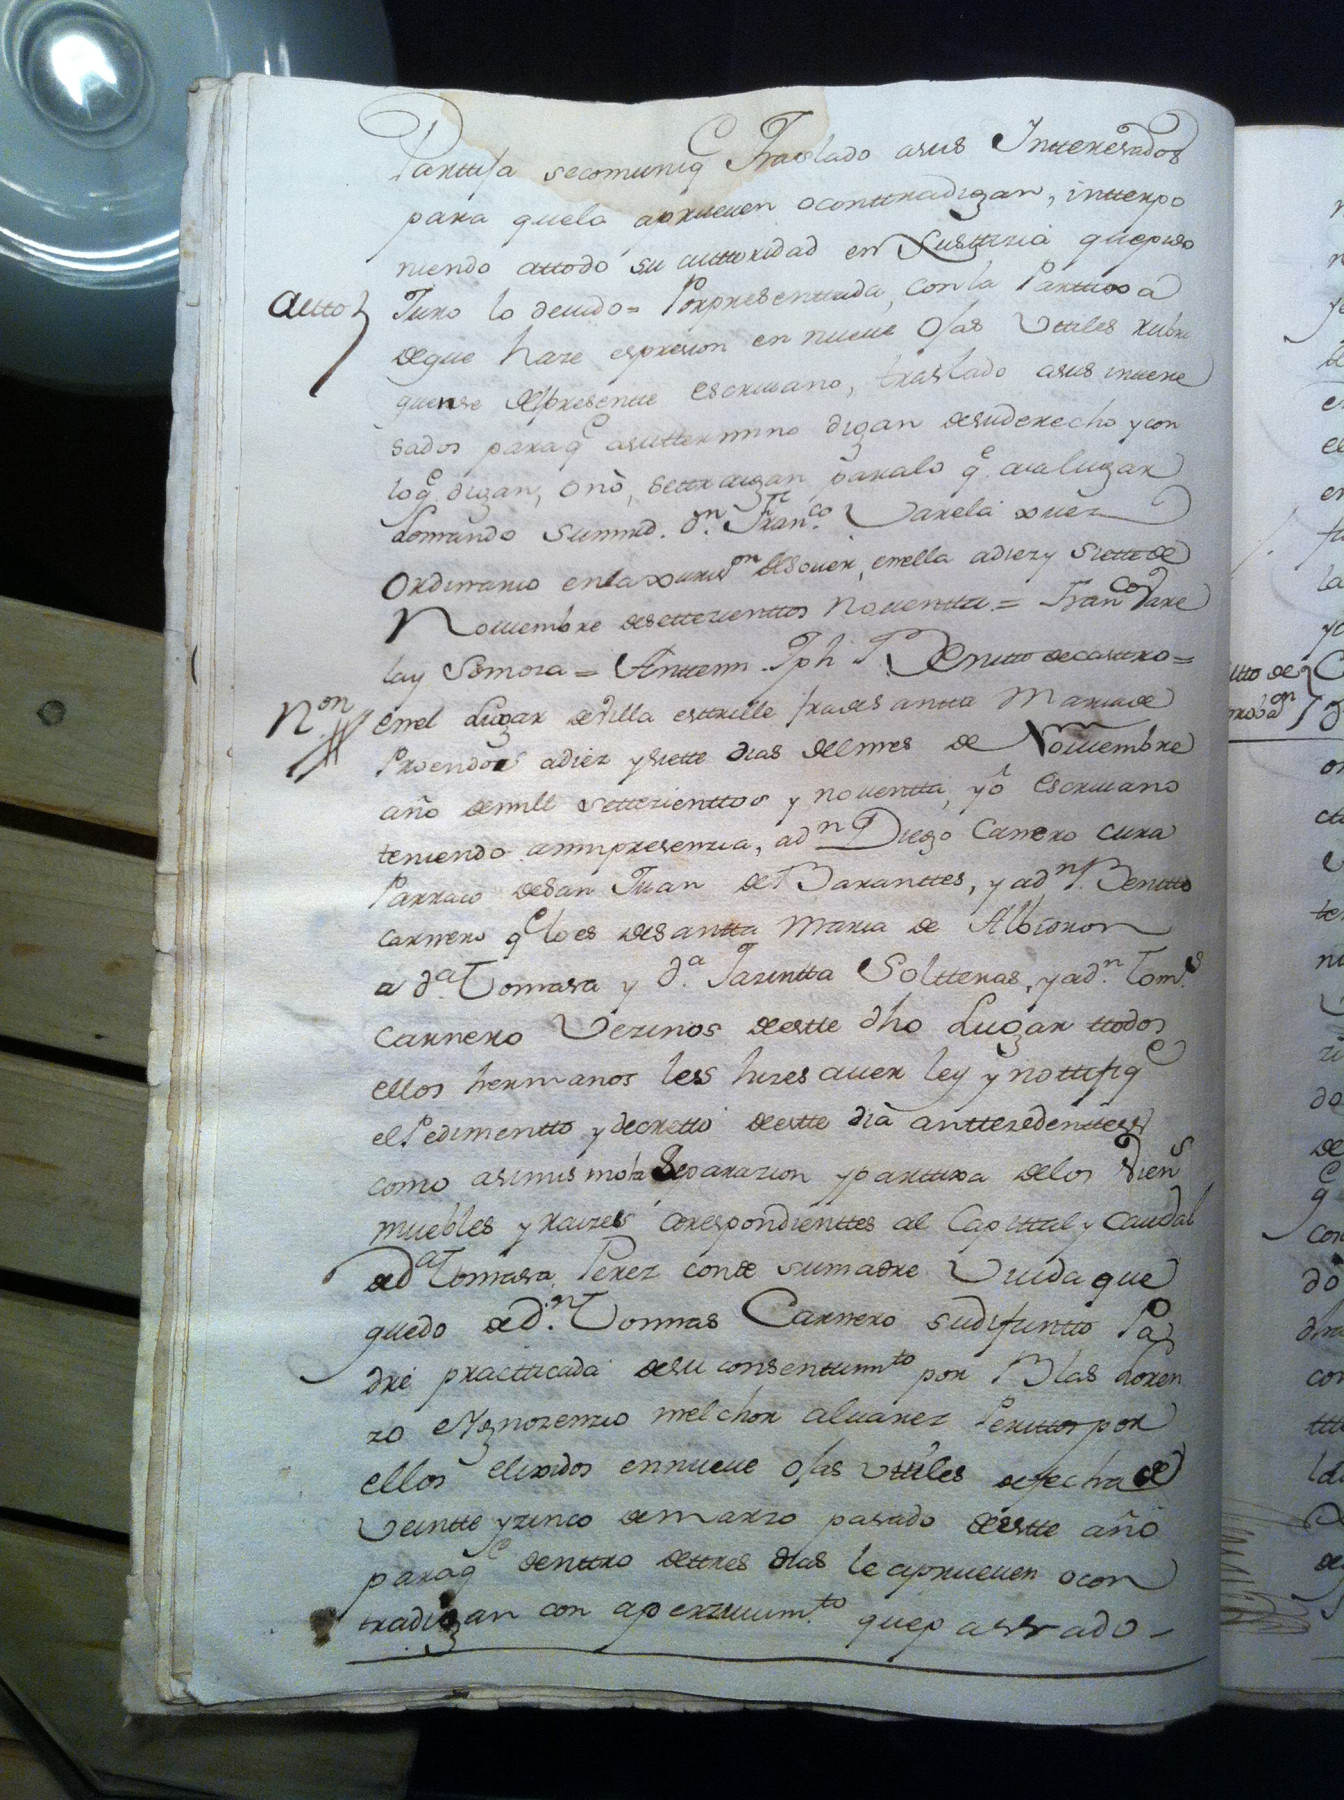 Parttija secomuniq.e Traslado asus Intteresados
para quela aprueuen ocontradigan,intterpo
niendo attodo su auttoridad en Justtizia quepido
Autto Juro lo deuido= Porpresenttada, con la Parttixa
deque haze espresion en nueue ojas Uttiles rubri
quense delpresentte escriuano, traslado asus inttere
sados paraq.e asuttermino digan desuderecho y con
loq.e digan, ono, settraigan paralo q.e aia lugar
Lomando Summrd. d.n Fran.co Varela Juez
Ordinario enla Juris.on desouer, enella adiez y Siette de
Nouiembre desettezienttos Nouentta= Fran.co Vare
la y Somoza= Anttemi Jph Benitto decasttro=
N.on enel Lugar de Villa esttrille fra. desantta Maria de
Proendos adiez ysiette dias delmes de Nouiembre
año demill settezienttos y nouentta, yo escriuano
teniendo amipresenzia, ad.n Diego Carnero cura
Parraco desan Juan de Baranttes, y ad.n Benitto
carnero q.e loes desantta Maria de Albioron
a d.a Tomasa y d.a Jazintta Soltteras, y ad.n Tom.s
carnero Vezinos deestte dho Lugar ttodos
ellos hermanos less hizesauer ley y nottifiq.e
el Pedimentto y decretto deestte dia anttezedenttess
como asimismo la Separazion yparttixa delos Vien.s
muebles y raizes corespondienttes al Capittal y Caudal
de d.a Tomasa Perez conde sumadre Viuda que
quedo de d.n Tomas Carnero sudifuntto Pa
dre practticada desu consenttim.to por Blas Loren
zo e Ynozenzio melchor aluarez Perittos por
ellos elixidos ennueue ojas Uttiles defecha de
Veintte yzinco demarzo pasado deestte año
paraq.e denttro dettres dias le aprueuen ocon
tradigan con aperzium.to quepassado-